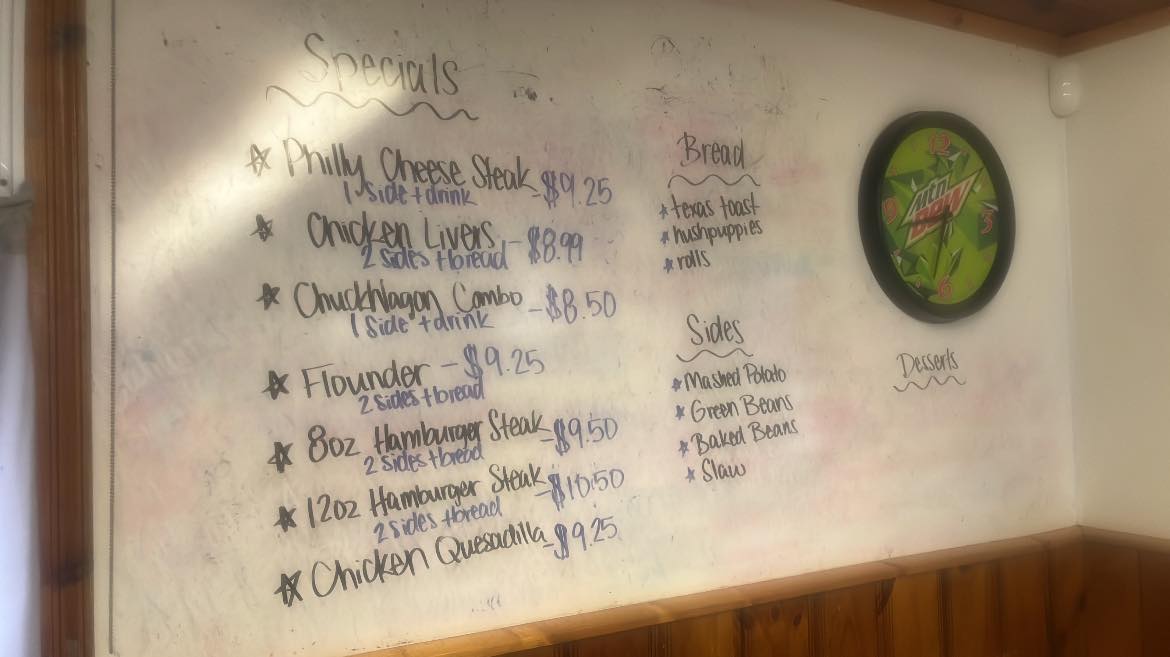 Specials
Philly Cheese Steak - $9.25
1 side + drink
Chicken Livers - $8.99
2 sides + bread
Chuckwagon Combo - $8.50
1 side + drink
Flounder - $9.25
2 sides + bread
8oz Hamburger Steak - $9.50
2 sides + bread
12oz Hamburger Steak - $10.50
2 sides + bread
Chicken Quesadilla - $9.25
Bread
texas toast
hushpuppies
rolls
Sides
Mashed Potato
Green Beans
Baked Beans
Slaw
12
9
3
6
Mtn
DEW
Desserts